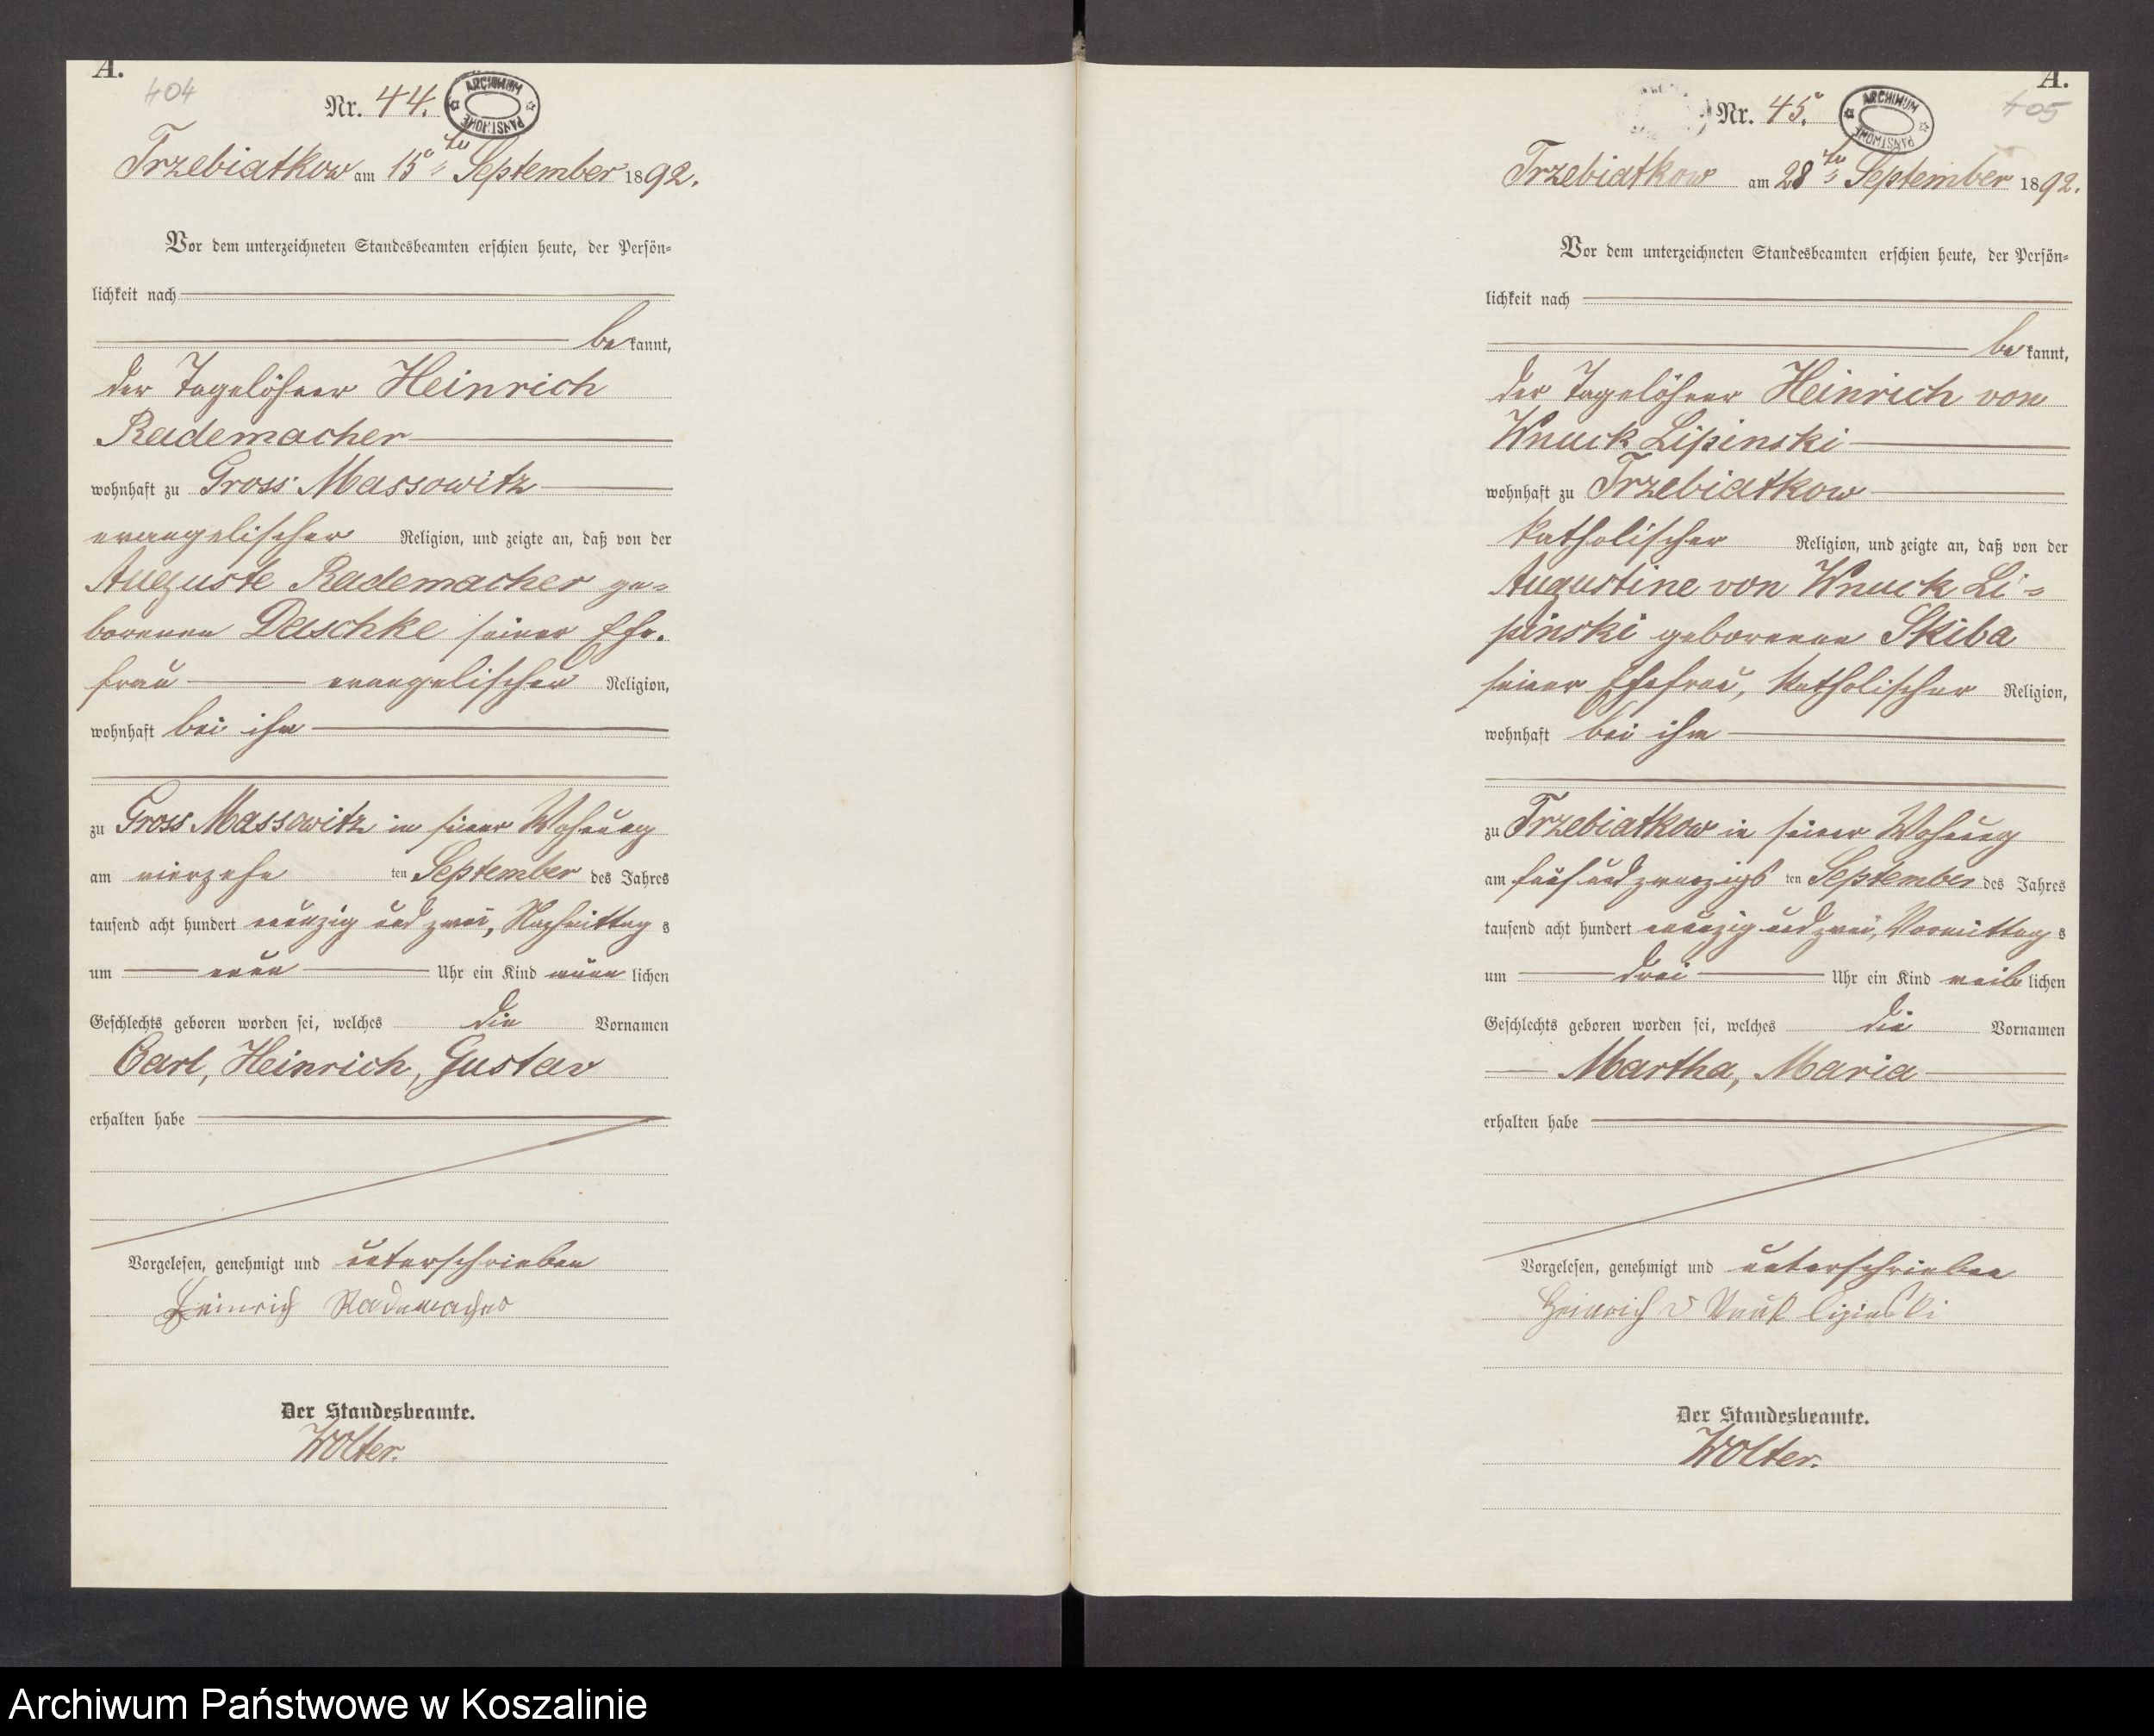 A.
404
Nr. 44.
ARCHIWUM PAŃSTWOWE
Trzebiatkow am 15ten September 1892.
Vor dem unterzeichneten Standesbeamten erschien heute, der Persön=
lichkeit nach
be kannt,
der Tagelöhner Heinrich
Rademacher
wohnhaft zu Gross Massowitz
evangelischer Religion, und zeigte an, daß von der
Auguste Rademacher ge=
borenen Daschke seiner Ehe.
frau evangelischer Religion,
wohnhaft bei ihm
zu Gross Massowitz in seiner Wohnung
am vierzehn ten September des Jahres
tausend acht hundert neunzig und zwei, Nachmittag s
um neun Uhr ein Kind männ lichen
Geschlechts geboren worden sei, welches die Vornamen
Carl, Heinrich, Gustav
erhalten habe
Vorgelesen, genehmigt und unterschrieben
Heinrich Rademacher
Der Standesbeamte.
Wolter.
A.
405
Nr. 45.
ARCHIWUM PAŃSTWOWE
Trzebiatkow am 28ten September 1892.
Vor dem unterzeichneten Standesbeamten erschien heute, der Persön=
lichkeit nach
be kannt,
der Tagelöhner Heinrich von
Wnuck Lipinski
wohnhaft zu Trzebiatkow
katholischer Religion, und zeigte an, daß von der
Augustine von Wnuck Li=
pinski geborenen Skiba
seiner Ehefrau, katholischer Religion,
wohnhaft bei ihm
zu Trzebiatkow in seiner Wohnung
am fünf und zwanzigs ten September des Jahres
tausend acht hundert neunzig und zwei, Vormittag s
um drei Uhr ein Kind weib lichen
Geschlechts geboren worden sei, welches die Vornamen
Martha, Maria
erhalten habe
Vorgelesen, genehmigt und unterschrieben
Heinrich v Wnuk Lipinski
Der Standesbeamte.
Wolter.
Archiwum Państwowe w Koszalinie